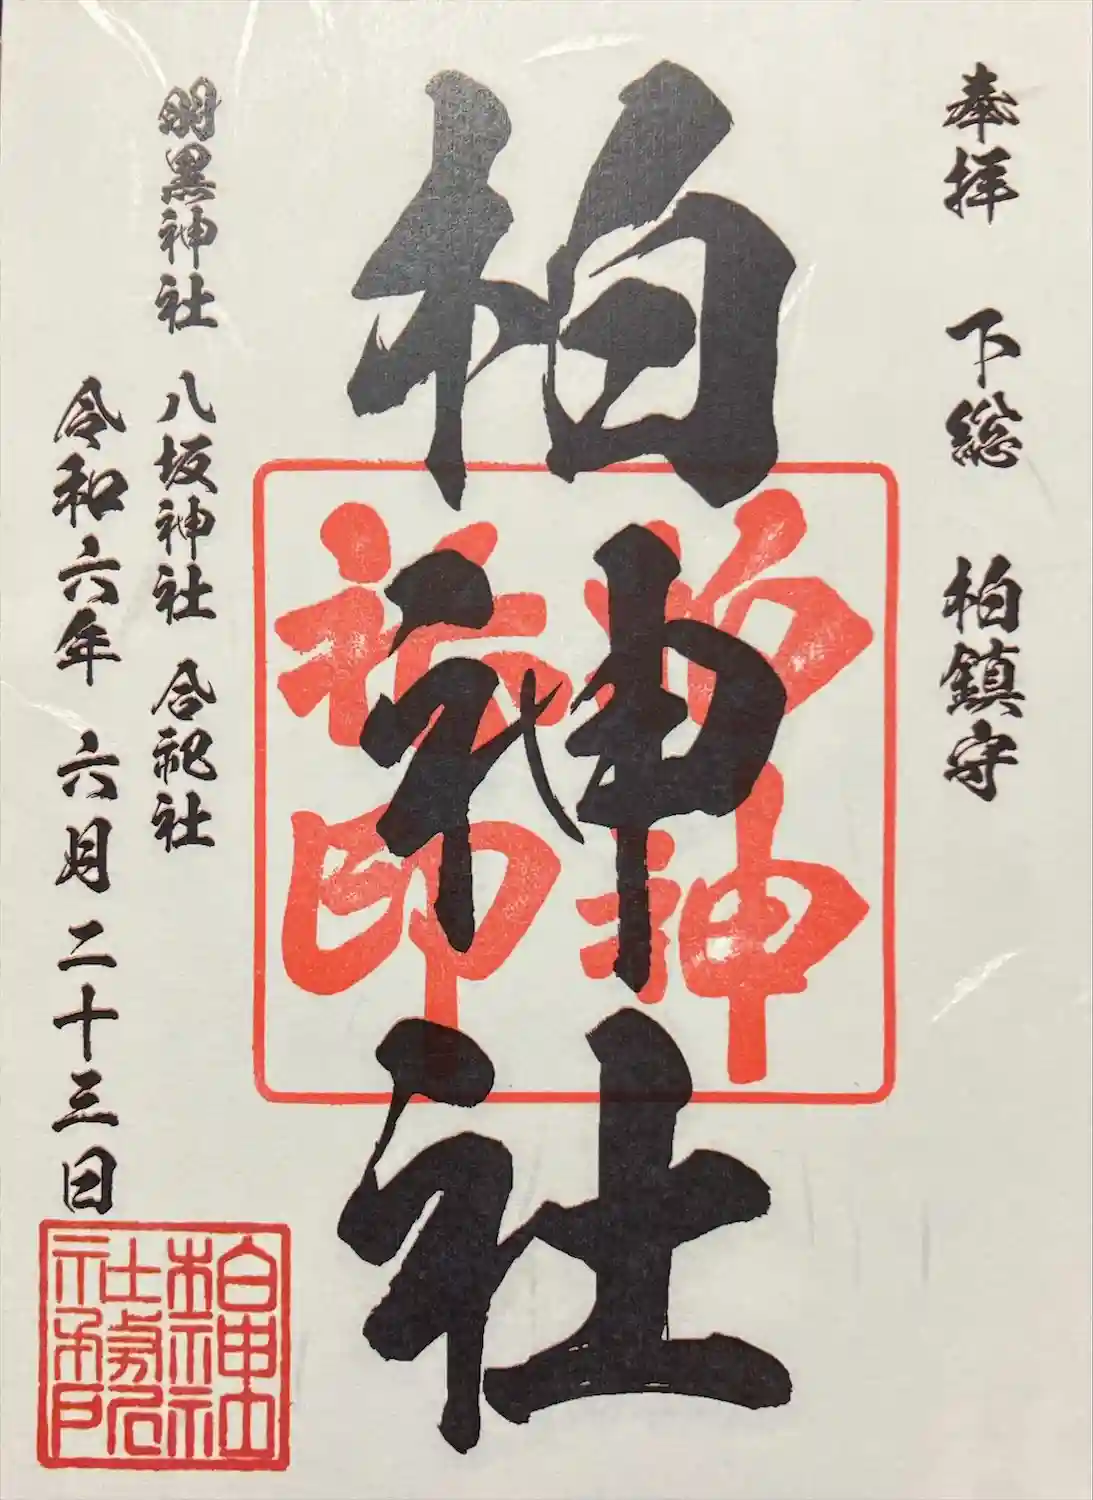 奉拝 下総 柏鎮守
柏神社
柏神
社印
羽黒神社 八坂神社 合祀社
令和六年 六月二十三日
柏神社
社務所